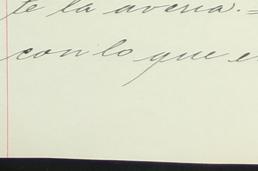 te la averia. =
con lo que e